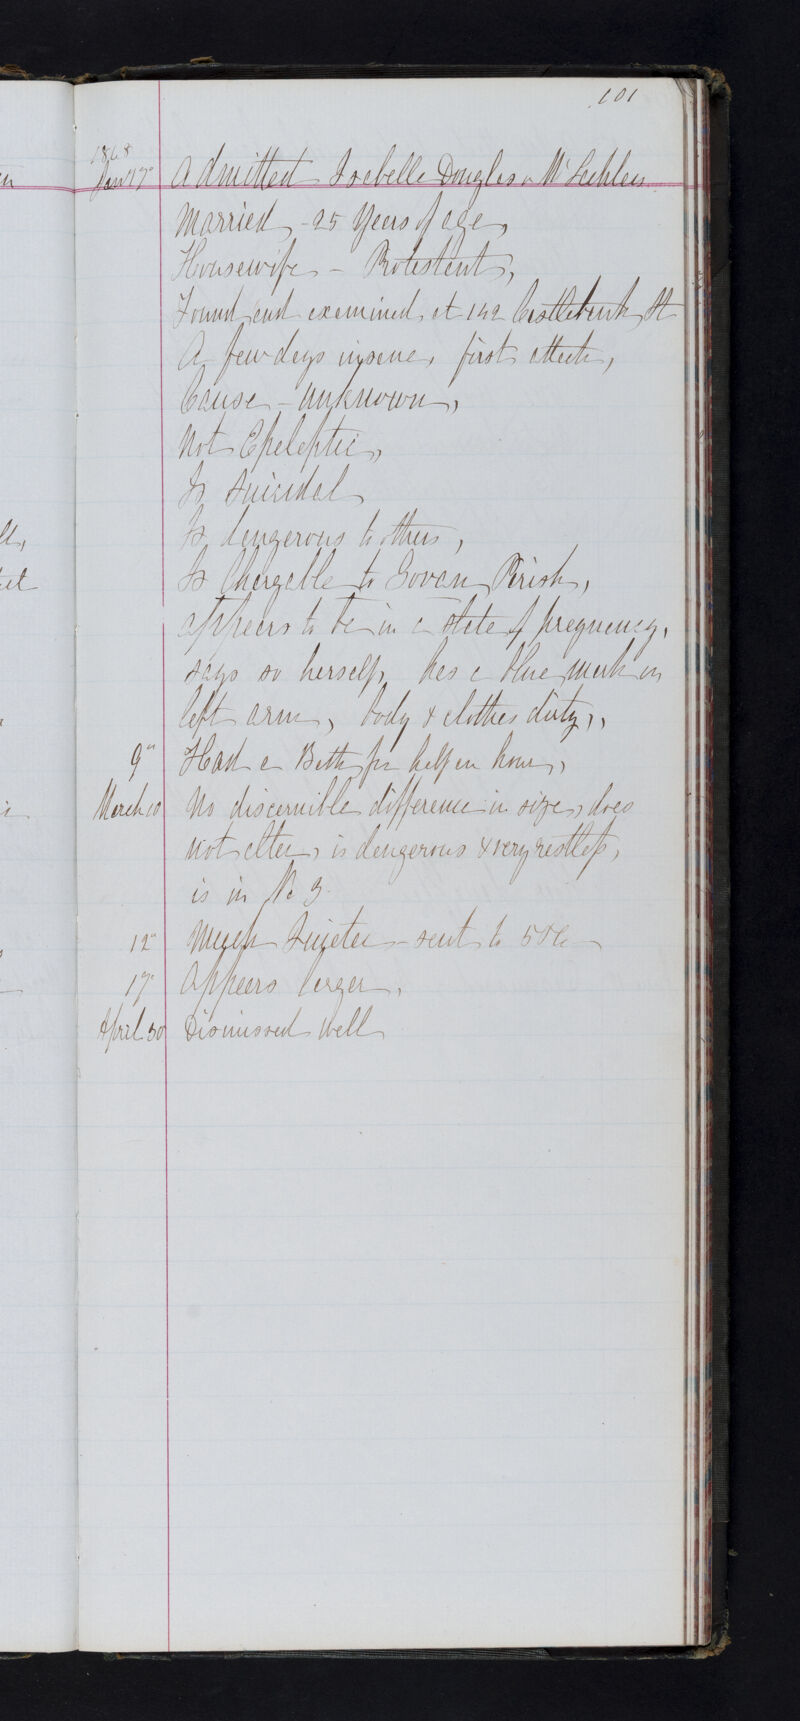 101
1868
Jany 17" Admitted Isabella Douglas or McLachlan
Married, 25 Years of age,
Housewife - Protestant,
Found and examined at 142 Castlebank St
A few days insane, first attack,
Cause - Unknown,
Not Epeleptic,
Is Suicidal
Is dangerous to others,
Is Chargable to Govan Parish,
appears to be in a state of pregnancy,
says so herself, has a blue mark on
left arm, body & clothes dirty,
9" Had a Bath for half an hour,
March 10 No discernible difference in size, does
not alter, is dangerous & very restless,
is in No 3.
12" Much Quieter - sent to
17" Appears larger,
April 30 Dismissed Well